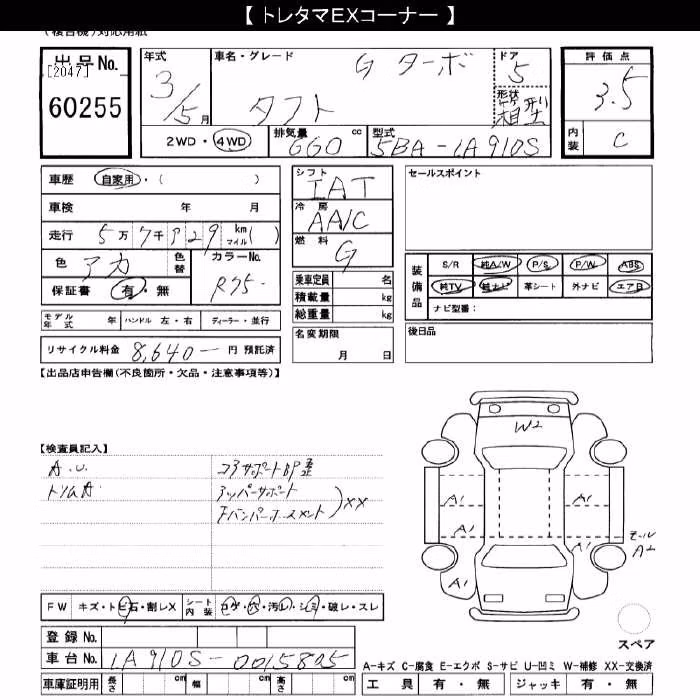 【 トレタマEXコーナー 】
(複合機)対応用紙
出品No.
[2047]
60255
年式 3/5月
車名・グレード G ターボ
タフト
ドア 5
形状 箱型
2WD・4WD
排気量 660 cc
型式 5BA-LA910S
評価点 3.5
内装 C
車歴 自家用・( )
車検 年 月
走行 5万7千929 km マイル( )
色 アカ 色替
カラーNo. R75
保証書 有・無
モデル年式 年 ハンドル 左・右 ディーラー・並行
リサイクル料金 8,640- 円 預託済
シフト IAT
冷房 AA/C
燃料 G
乗車定員 名
積載量 kg
総重量 kg
名変期限
月 日
セールスポイント
装備品
S/R 純A/W P/S P/W ABS
純TV 純ナビ 革シート 外ナビ エアB
ナビ型番:
後日品
【出品店申告欄(不良箇所・欠品・注意事項等)】
【検査員記入】
A.U.
トリムA.
コアサポートUP歪
アッパーサポート
Fバンパーホースメント
XX
W2
A1
A1
A1
A1
A1
モール
A2
スペア
FW キズ・トビ石・割レX
シート内装 コゲ・穴・汚レ・シミ・破レ・スレ
登録No.
車台No. LA910S-0015805
車庫証明用 長さ cm 幅 cm 高さ cm
A-キズ C-腐食 E-エクボ S-サビ U-凹ミ W-補修 XX-交換済
工具 有・無 ジャッキ 有・無